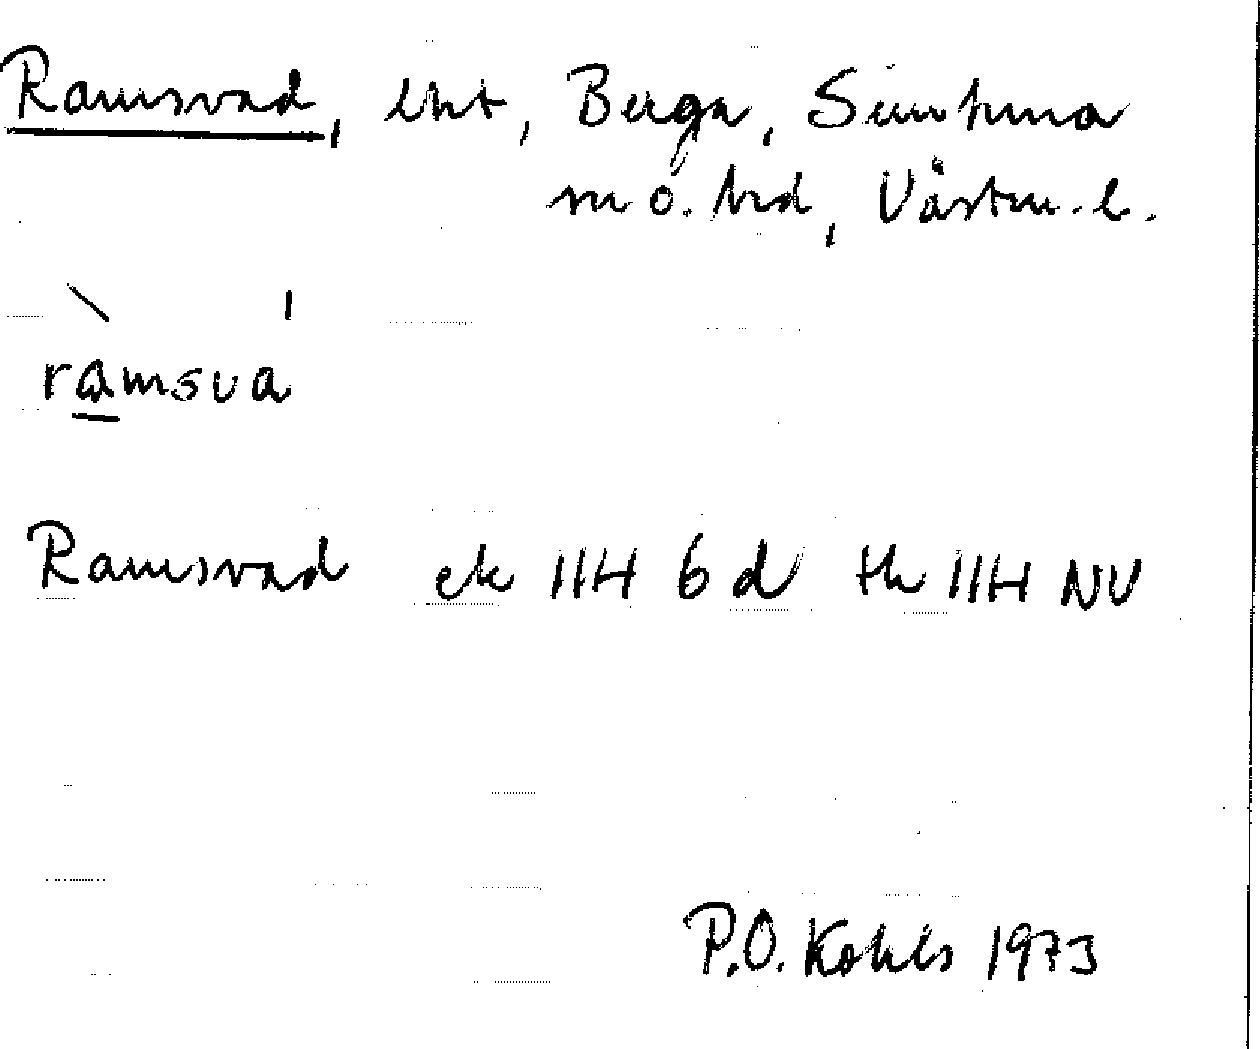 Ramsvad, lht, Berga, Simtuna
sn ö. hd, Västm. l.
ramsva
Ramsvad ek 11H 6 d tk 11H NV
P.O. Kohls 1973